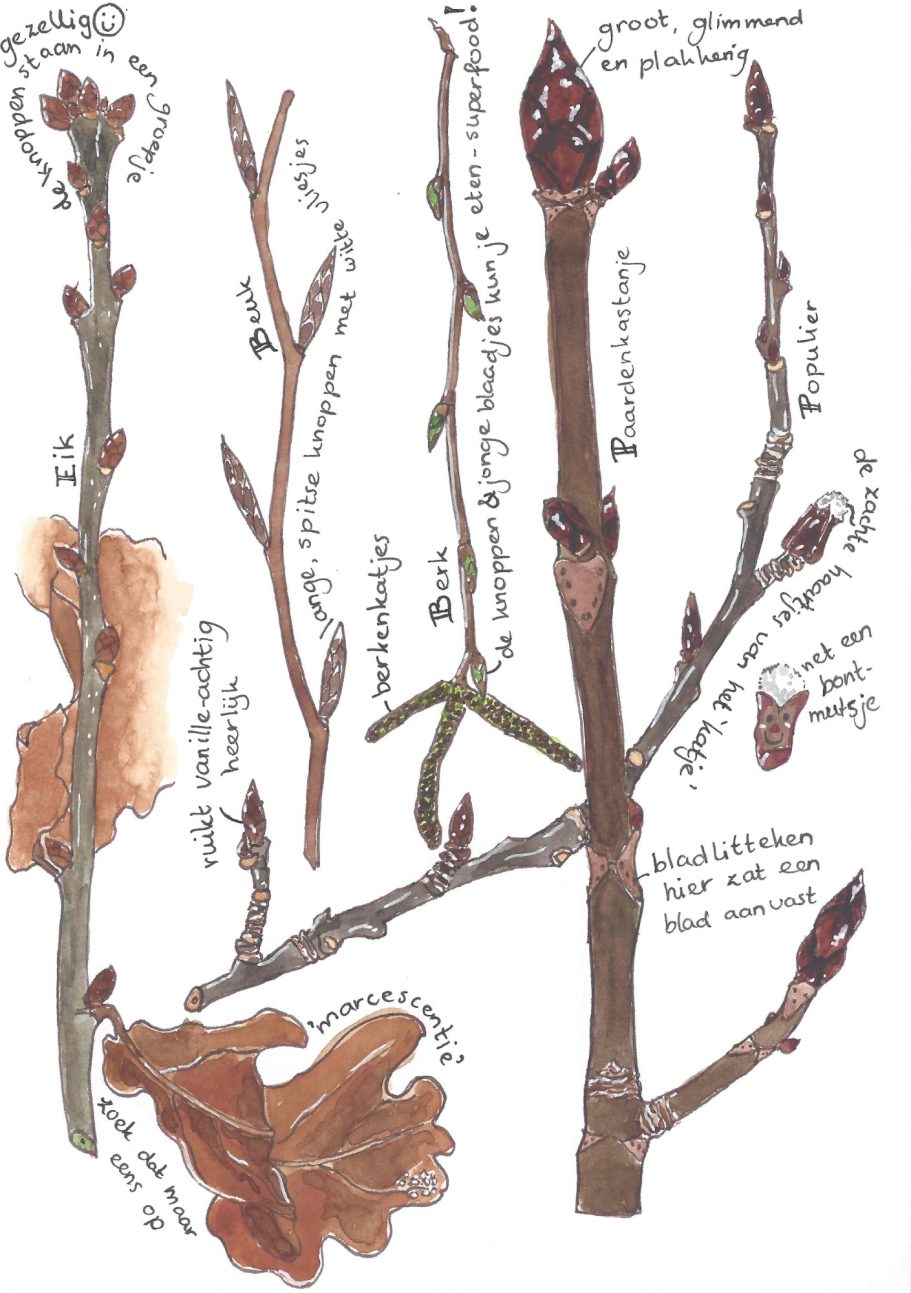 gezellig ☺
de knoppen staan in een groepje
Eik
Beuk
lange, spitse knoppen met witte vliesjes
Berk
de knoppen & jonge blaadjes kun je eten - superfood!
berkenkatjes
groot, glimmend
en plakkerig
Paardenkastanje
Populier
de zachte haartjes van het 'katje'
net een
bont-
mutsje
ruikt vanille-achtig
heerlijk
bladlitteken
hier zat een
blad aan vast
'marcescentie'
zoek dat maar
eens op